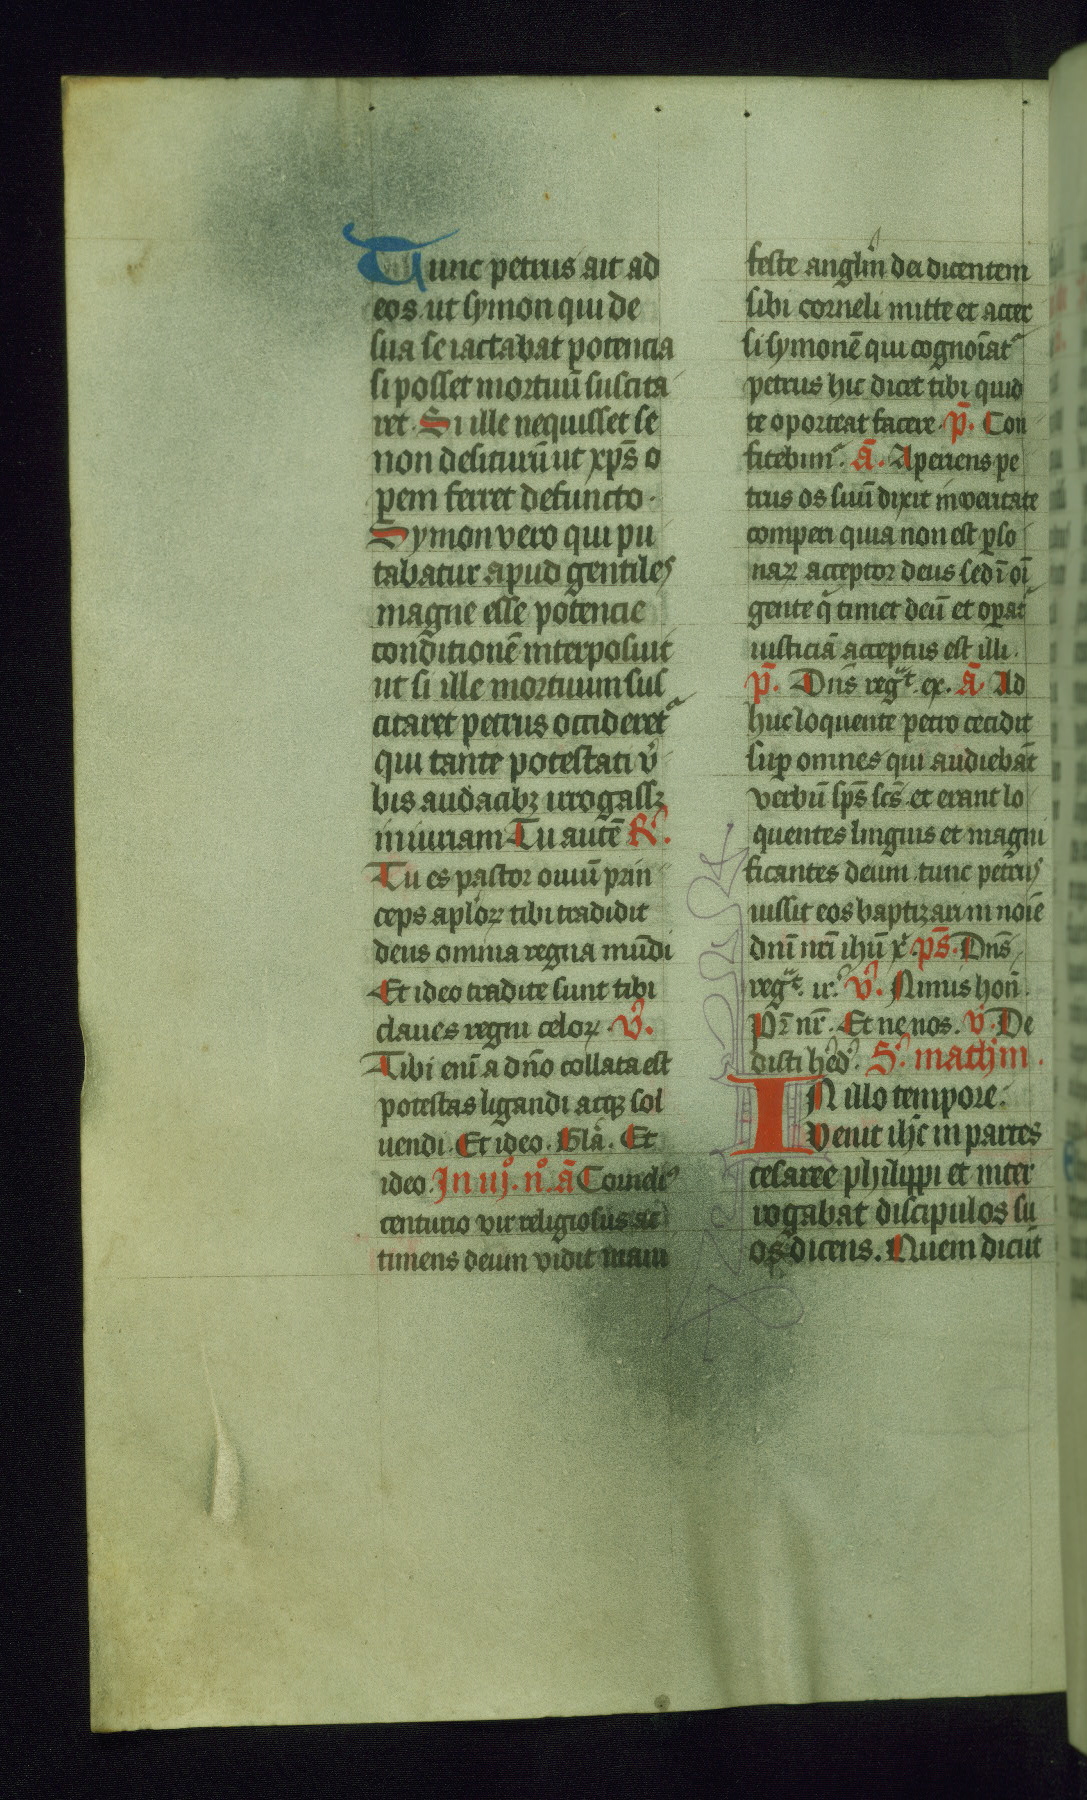 Tunc petrus ait ad
eos. ut symon qui de
sua se iactabat potencia
si posset mortuū suscita
ret. Si ille nequisset se
non desiturū ut xp̄s o
pem ferret defuncto.
Symon vero qui pu
tabatur apud gentiles
magne esse potencie
conditionē interposuit
ut si ille mortuum sus
citaret petrus occideret᷑
qui tante potestati v̓
bis audacibꝫ irrogassꝫ
iniuriam Tu autē R̓.
Tu es pastor ouiū prin
ceps aplōꝝ tibi tradidit
deus omnia regna mūdi
Et ideo tradite sunt tibi
claues regni celoꝝ. v̓.
Tibi eni̅ a dn̄o collata est
potestas ligandi atqꝫ sol
uendi. Et ideo. Glā. Et
ideo. In iij. n̊. ā Corneliꝰ
centurio vir religiosus ac
timens deum vidit mani
feste angl̓m dei dicentem
sibi corneli mitte et accer
si symonē qui cognoīat᷑
petrus hic dicet tibi quid
te oporteat facere. p̄. Con
fitebim᷑. ā. Aperiens pe
trus os suū dixit in veritate
comperi quia non est ꝑso
naꝝ acceptor deus sed ī oī
gente q̄ timet deū et oꝑat᷑
iusticiā acceptus est illi.
p̄. Dn̄s regͣᵗ. ex. ā. Ad
huc loquente petro cecidit
suꝑ omnes qui audiebāt
verbū sp̄s sc̄s et erant lo
quentes linguis et magni
ficantes deum tunc petrus
iussit eos baptizari in noīe
dn̄i nr̄i ih̄u x̓. p̄s. Dn̄s
regͣᵗ. ir̓. v̓. Nimis hon̄.
Pr̄ nr̄. Et ne nos. v̓. De
disti h̓ed̓. S̓. math̓m.
IN illo tempore.
Venit ih̓c in partes
cesaree philippi et inter
rogabat discipulos su
os dicens. Quem dicūt